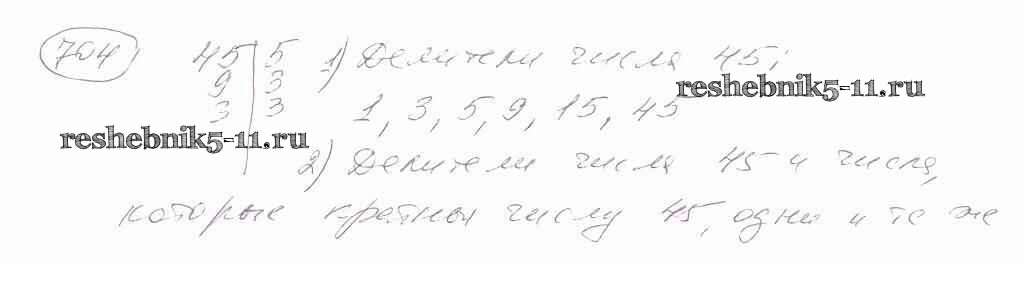 704) 45 | 5 1) Делители числа 45:
9 | 3 reshebnik5-11.ru
3 | 3 1, 3, 5, 9, 15, 45
reshebnik5-11.ru
2) Делители числа 45 и числа,
которые кратны числу 45, одни и те же